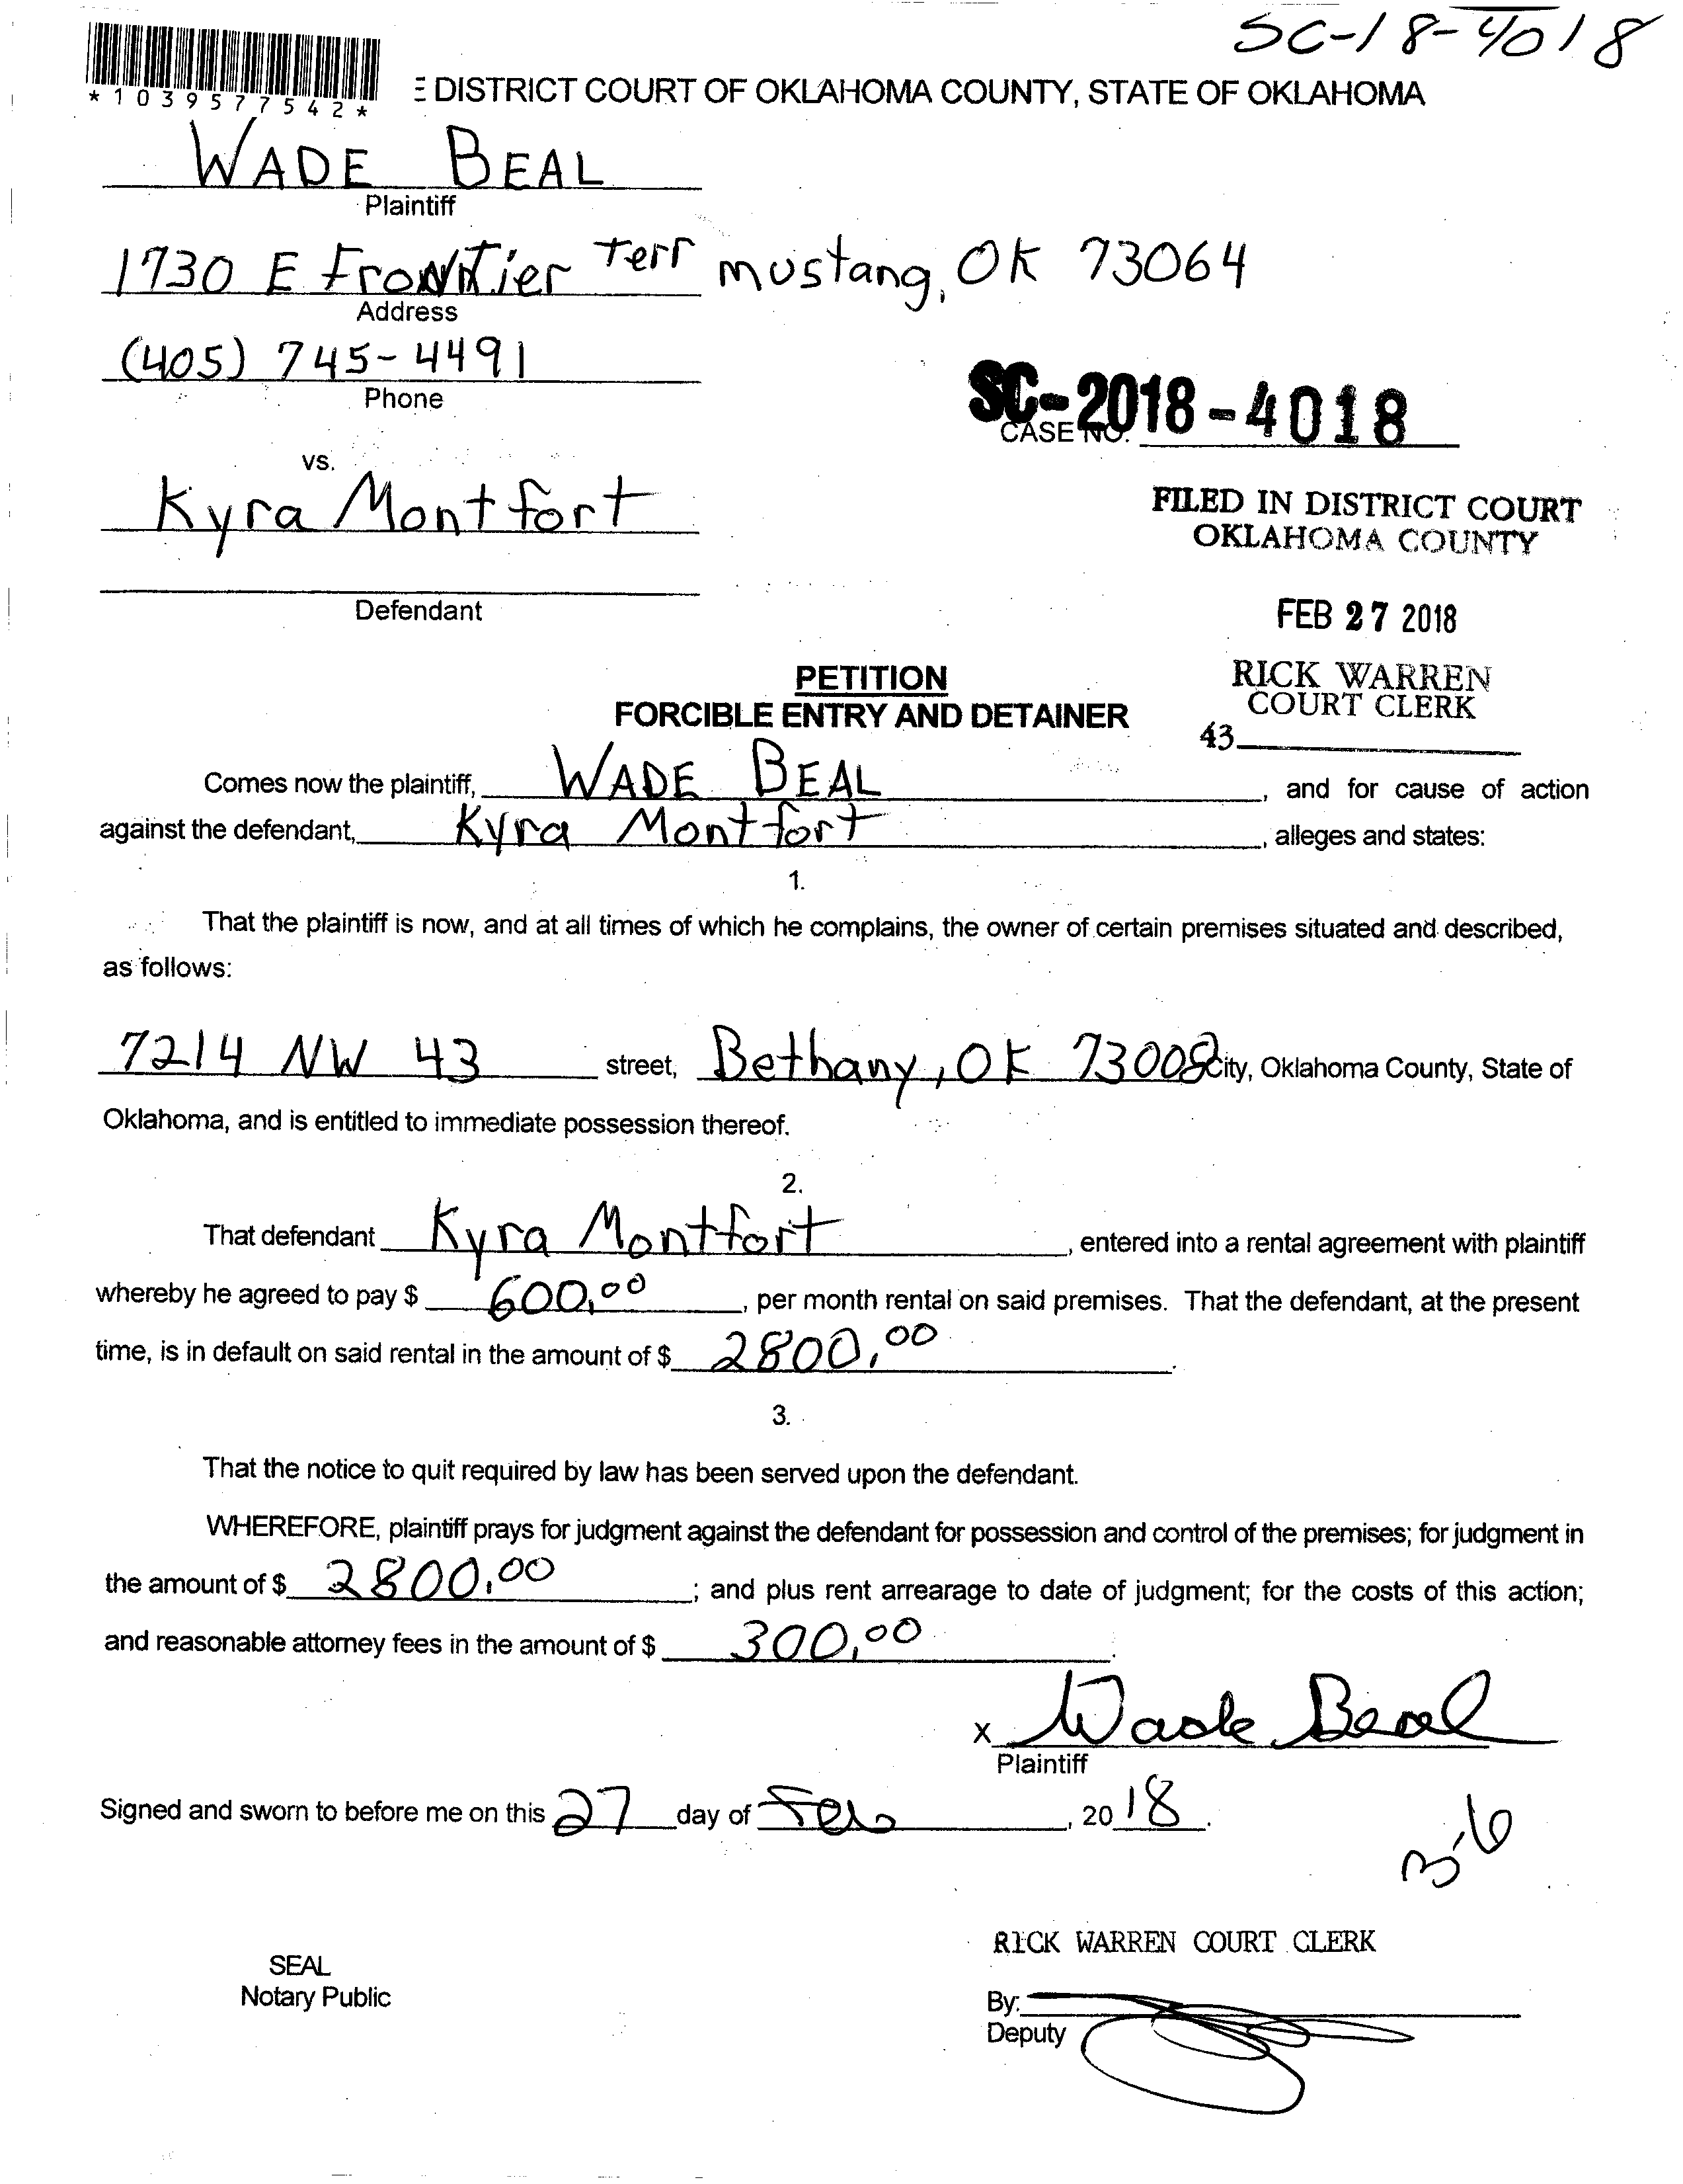 SC-18-4018
*1039577542*
E DISTRICT COURT OF OKLAHOMA COUNTY, STATE OF OKLAHOMA
WADE BEAL
Plaintiff
1730 E Frontier Terr mustang, OK 73064
Address
(405) 745-4491
Phone
SC-2018-4018
CASE NO.
vs.
Kyra Montfort
FILED IN DISTRICT COURT
OKLAHOMA COUNTY
Defendant
FEB 27 2018
PETITION
FORCIBLE ENTRY AND DETAINER
RICK WARREN
COURT CLERK
43
Comes now the plaintiff, WADE BEAL, and for cause of action
against the defendant, Kyra Montfort, alleges and states:
1.
That the plaintiff is now, and at all times of which he complains, the owner of certain premises situated and described,
as follows:
7214 NW 43 street, Bethany, OK 73008 City, Oklahoma County, State of
Oklahoma, and is entitled to immediate possession thereof.
2.
That defendant Kyra Montfort, entered into a rental agreement with plaintiff
whereby he agreed to pay $ 600.00, per month rental on said premises. That the defendant, at the present
time, is in default on said rental in the amount of $ 2800.00.
3.
That the notice to quit required by law has been served upon the defendant.
WHEREFORE, plaintiff prays for judgment against the defendant for possession and control of the premises; for judgment in
the amount of $ 2800.00; and plus rent arrearage to date of judgment; for the costs of this action;
and reasonable attorney fees in the amount of $ 300.00.
x Wade Beal
Plaintiff
Signed and sworn to before me on this 27 day of Feb, 2018.
3-6
RICK WARREN COURT CLERK
SEAL
Notary Public
By:
Deputy